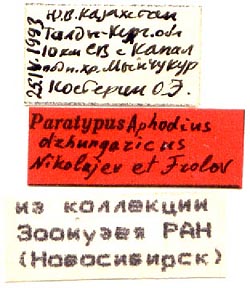 Ю.В. Казахстан
Талды-Кург. обл
10 км СВ с Капал
подн. хр. Мынчукур
Косберген О.Э.
25.IV.1993
Paratypus Aphodius
dzhungaricus
Nikolajev et Frolov
из коллекции
Зоомузея РАН
(Новосибирск)